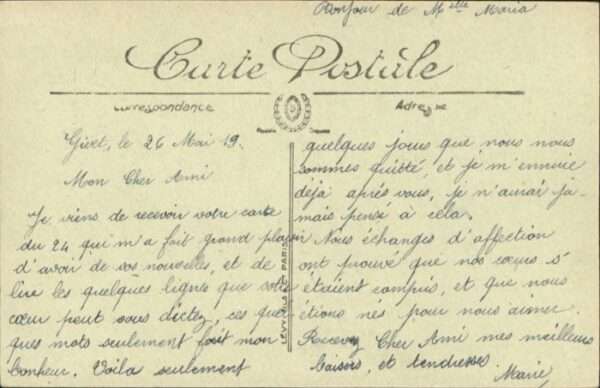 Bonjour de Mlle Maria
Carte Postale
Correspondance
Adresse
Givet, le 26 Mai 19.
Mon Cher Ami
Je viens de recevoir votre carte
du 24 qui m'a fait grand plaisir
d'avoir de vos nouvelles, et de
lire les quelques ligne que votre
cœur peut vous dictez, ces quel
ques mots seulement fait mon
bonheur. Voila seulement
quelques jours que nous nous
sommes quitté, et je m'ennuie
déjà après vous, je n'aurai ja-
mais pensé à cela.
Nous échanges d'affection
ont prouvé que nos cœurs s'
étaient compris, et que nous
étions nés pour nous aimer.
Recevez Cher Ami mes meilleurs
baisers, et tendresses.
Marie
LEVY FILS & Cie PARIS